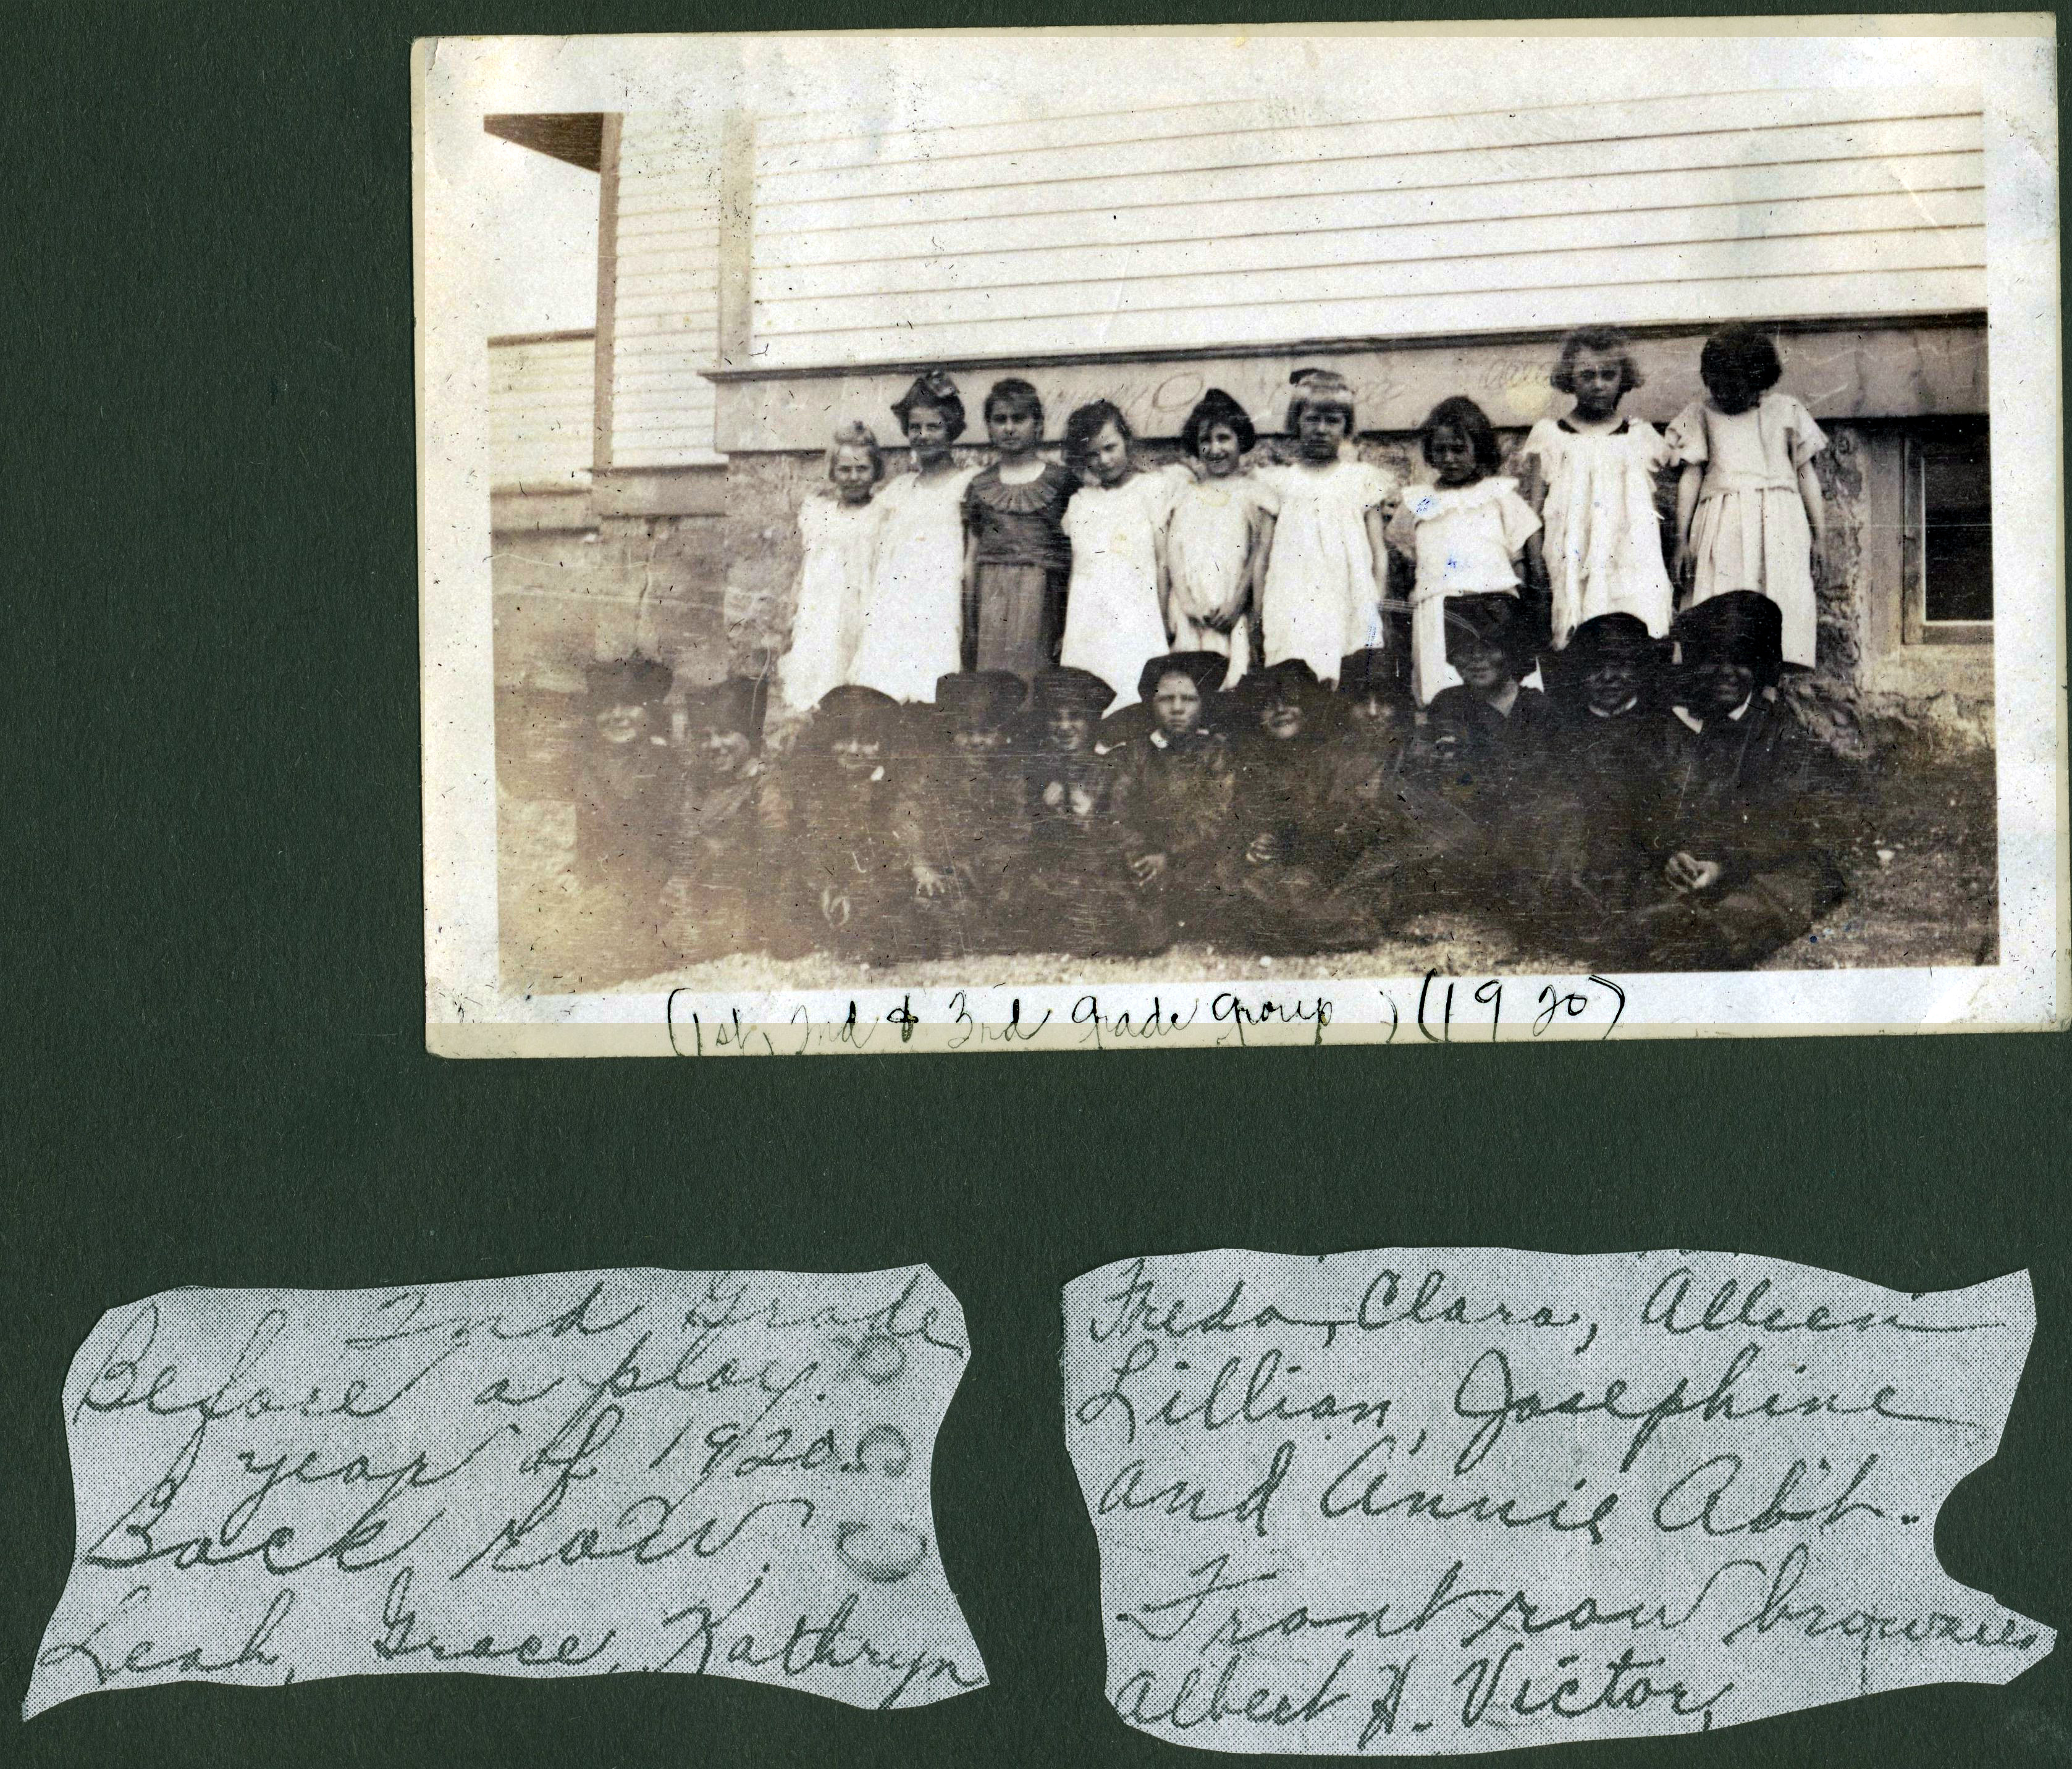 (1st, 2nd & 3rd Grade Group) (1920)
2nd Grade
Before a play.
year of 1920.
Back row.
Leah, Grace, Kathryn
Freda, Clara, Alleen
Lillian, Josephine
and Annie Abt.
Front row brownies
Albert H. Victor,